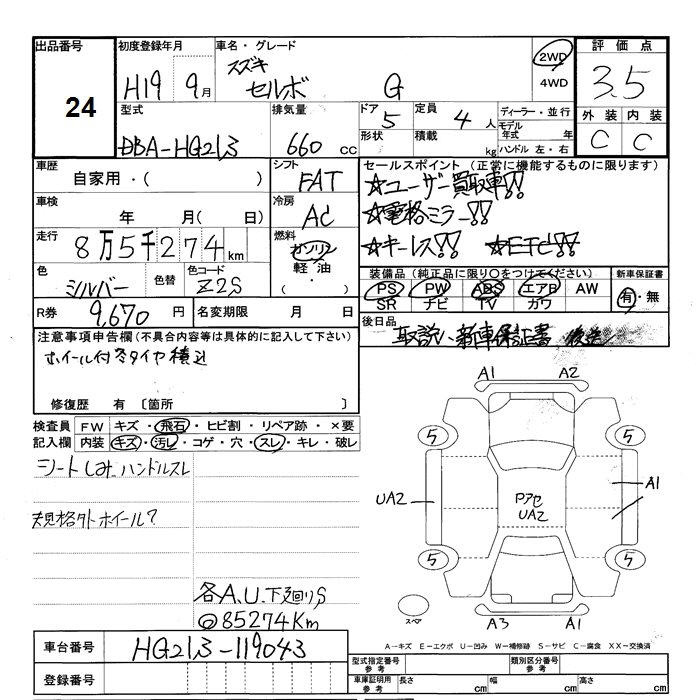 出品番号
24
初度登録年月
H19 9月
車名・グレード
スズキ
セルボ G
2WD
4WD
評価点
3.5
外装 内装
C C
型式
DBA-HG21S
排気量
660 cc
ドア
5
形状
定員
4 人
積載
kg
ディーラー・並行
モデル年式 年
ハンドル 左・右
車歴
自家用・( )
シフト
FAT
車検
年 月( 日)
冷房
AC
走行
8万5千274km
燃料
ガソリン
軽油
・( )
色
シルバー
色替
色コード
Z2S
R券
9,670円
名変期限 月 日
セールスポイント (正常に機能するものに限ります)
☆ユーザー買取車!!
☆電格ミラー!!
☆キーレス!! ☆ETC!!
装備品(純正品に限り〇をつけてください)
PS PW ABS エアB AW
SR ナビ TV カワ
新車保証書
有・無
後日品
取説、新車保証書 後送
注意事項申告欄(不具合内容等は具体的に記入して下さい)
ホイール付冬タイヤ積込
修復歴 有〔箇所 〕
検査員記入欄
FW キズ・飛石・ヒビ割・リペア跡・×要
内装 キズ・汚レ・コゲ・穴・スレ・キレ・破レ
シートしみ ハンドルスレ
規格外ホイール?
各A、U、下廻りS
@85274Km
A1 A2
5 5
UA2
Pアセ
UA2
A1
5 5
スペア
A3 A1
A-キズ E-エクボ U-凹み W-補修跡 S-サビ C-腐食 XX-交換済
車台番号
HG21S-119043
登録番号
型式指定番号
参考
類別区分番号
参考
車庫証明用
参考
長さ cm
幅 cm
高さ cm